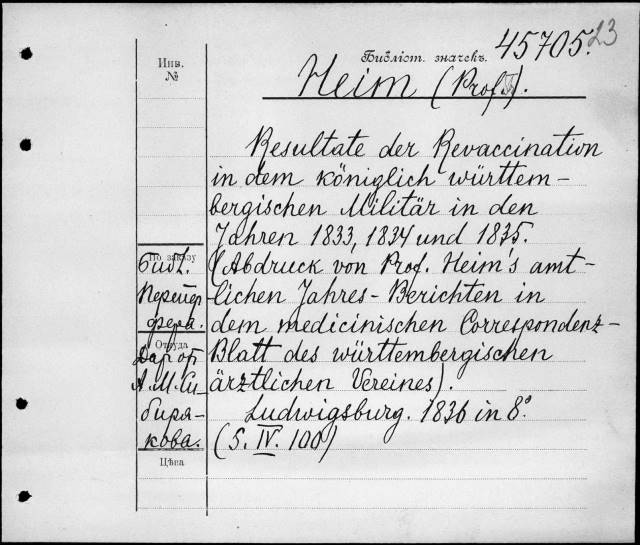 45705. 23
Библіот. значекъ.
Инв.
№
Heim (Prof.).
Resultate der Revaccination
in dem königlich württem-
bergischen Militär in den
Jahren 1833, 1834 und 1835.
(Abdruck von Prof. Heim's amt-
lichen Jahres-Berichten in
dem medicinischen Correspondenz-
Blatt des württembergischen
ärztlichen Vereines).
Ludwigsburg. 1836 in 8°.
(S. IV. 100)
По заказу
Библ.
Откуда
Дар от
А.М.Си-
биря-
кова.
Цѣна